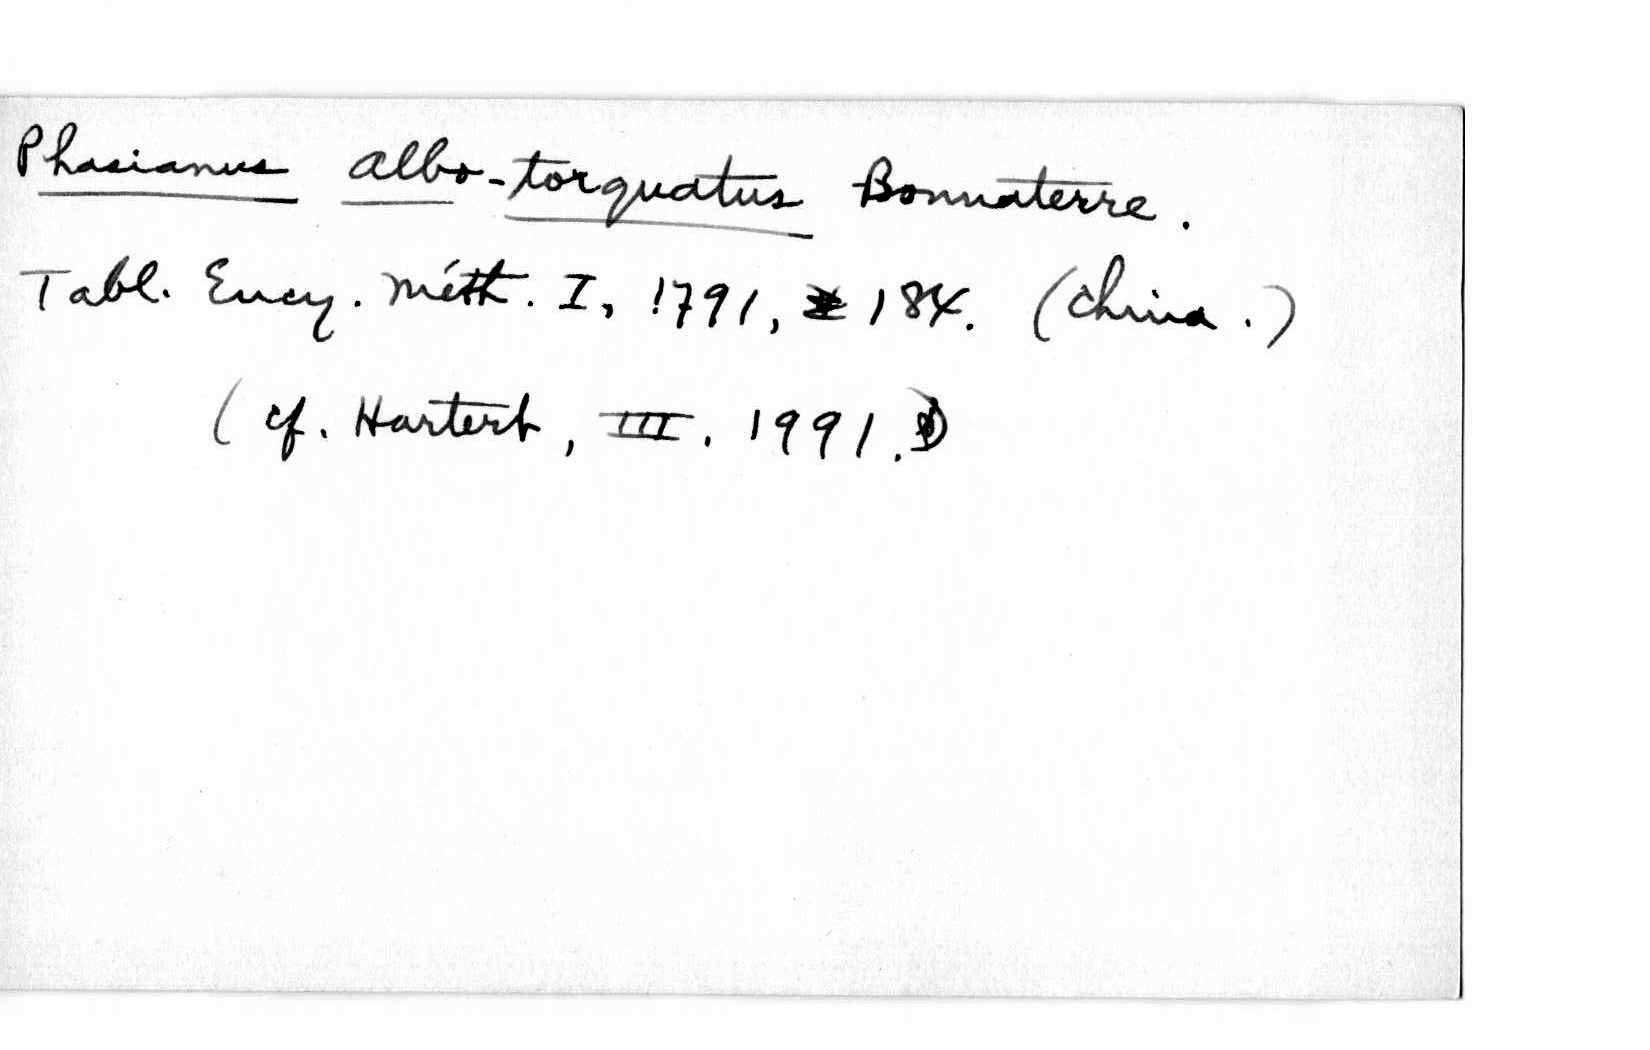 Phasianus albo-torquatus Bonnaterre.
Tabl. Ency. méth. I, 1791, 184. (China.)
(cf. Hartert, III. 1991.)